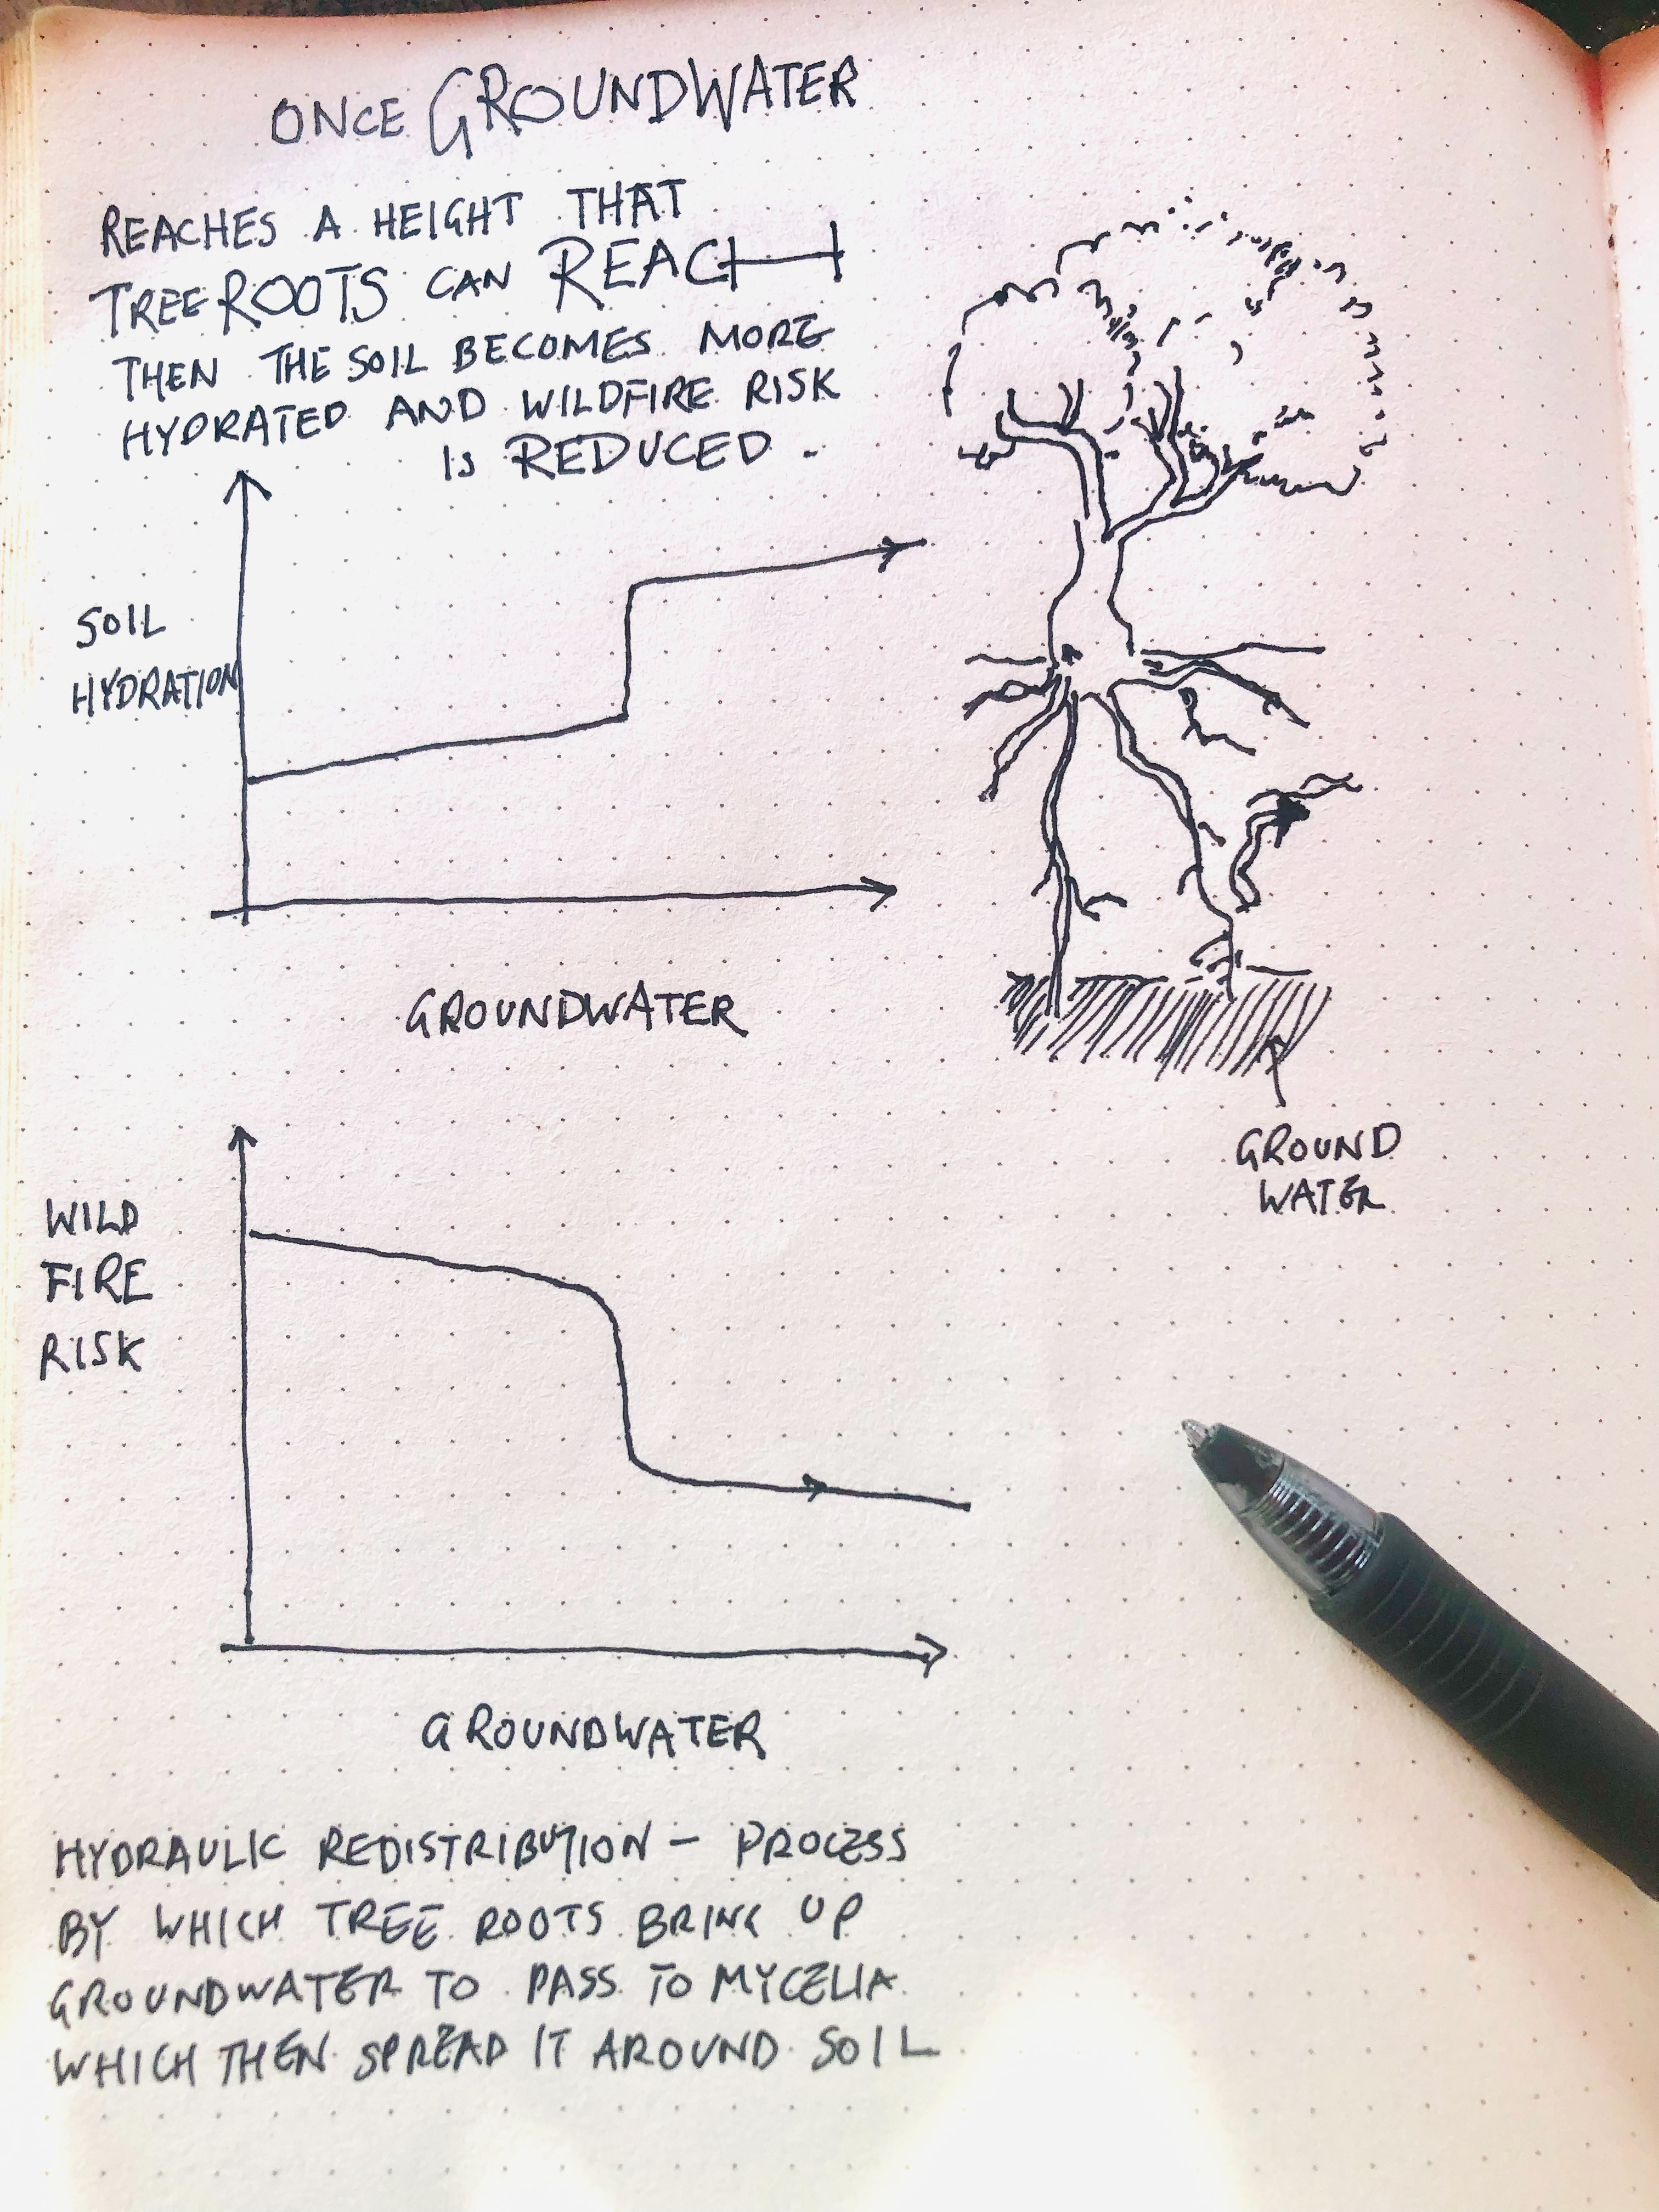 ONCE GROUNDWATER
REACHES A HEIGHT THAT
TREE ROOTS CAN REACH
THEN THE SOIL BECOMES MORE
HYDRATED AND WILDFIRE RISK
IS REDUCED.
SOIL
HYDRATION
GROUNDWATER
GROUND
WATER
WILD
FIRE
RISK
GROUNDWATER
HYDRAULIC REDISTRIBUTION - PROCESS
BY WHICH TREE ROOTS BRING UP
GROUNDWATER TO PASS TO MYCELIA
WHICH THEN SPREAD IT AROUND SOIL